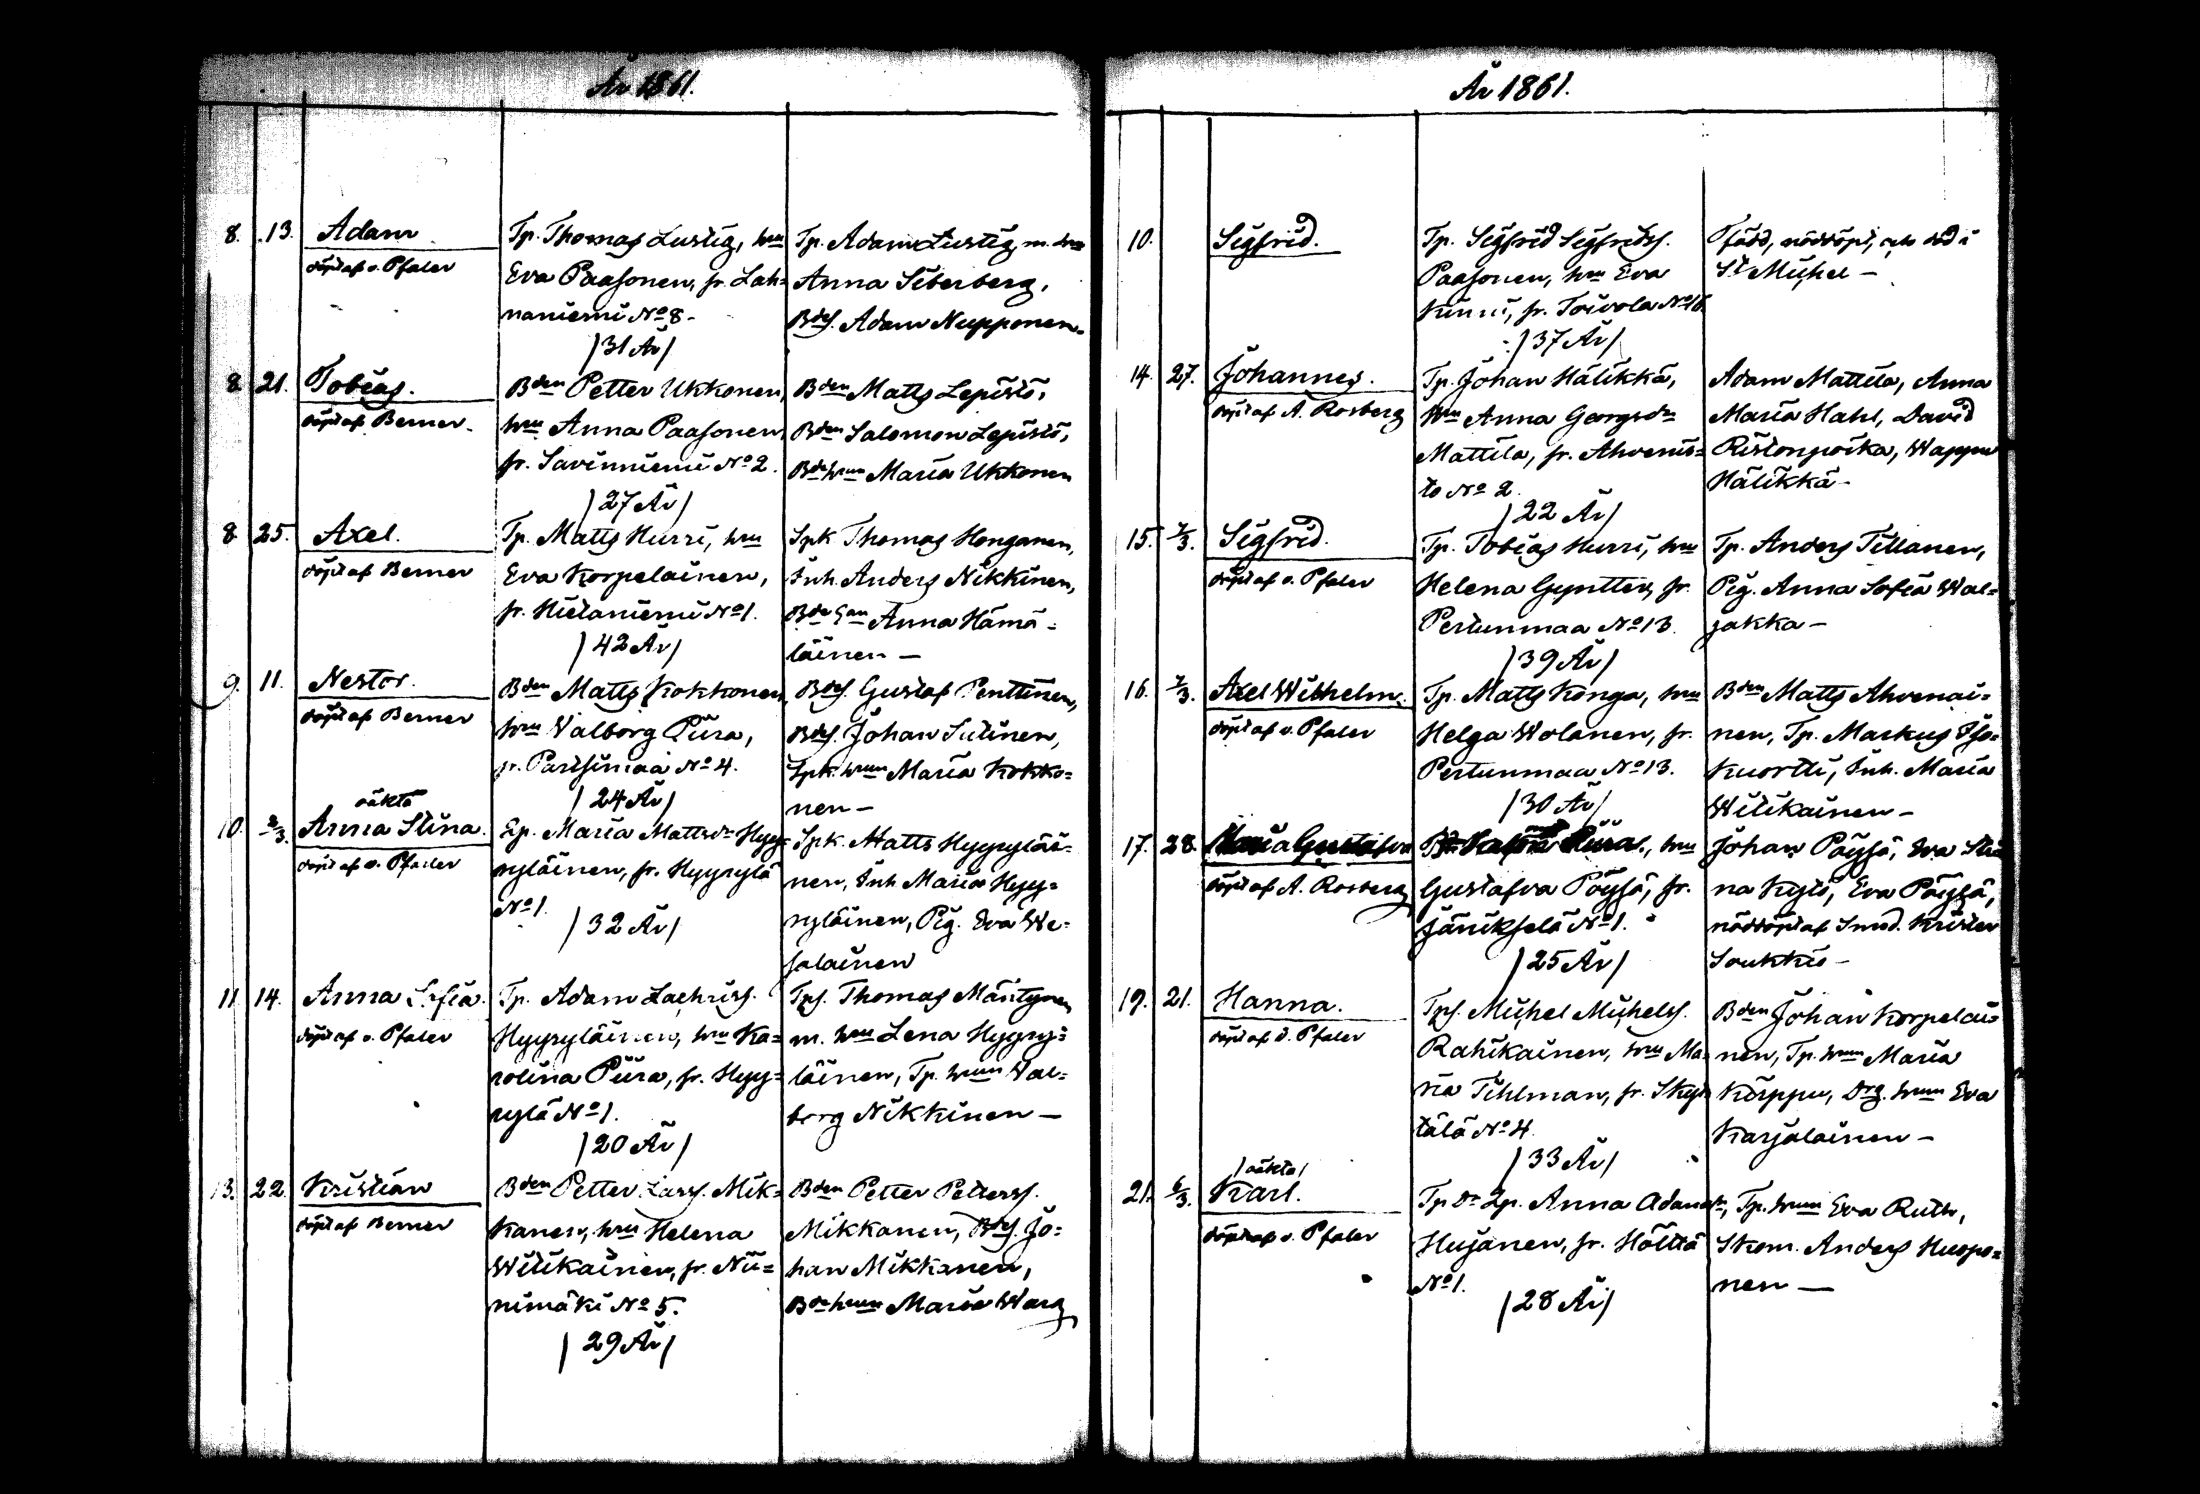 År 1861.
8. 13. Adam
döpt af v. Pfaler
Tp. Thomas Lustig, hru
Eva Paasonen, fr. Lah=
naniemi No 8.
/31 År/
Tp. Adam Lustig, m. hru
Anna Siberberg,
Bds. Adam Nupponen.
8. 21. Tobias.
döpt af Berner.
Bden Petter Ukkonen,
hru Anna Paasonen,
fr. Savinniemi No 2.
/27 År/
Bden Matts Lepistö,
Bden Salomon Lepistö,
Bdehru Maria Ukkonen
8. 25. Axel.
döpt af Berner
Tp. Matts Hurri, hru
Eva Korpelainen,
fr. Hietaniemi No 1.
/42 År/
Spk Thomas Honganen,
Inh. Anders Nikkinen,
Anna Hämä=
läinen —
9. 11. Nestor.
döpt af Berner
Bden Matts Kokkonen,
hru Valborg Piira,
fr. Partsimaa No 4.
/24 År/
Bds. Gustaf Penttinen,
Bds. Johan Sutinen,
Spk. hru Maria Kokko=
nen —
oäkta
10. 2/3. Anna Stina.
döpt af v. Pfaler
Ep. Maria Mattsdr Hyy=
ryläinen, fr. Hyyrylä
No 1.
/32 År/
Spk. Matts Hyyryläi=
nen, Inh Maria Hyy=
ryläinen, Pig. Eva We=
salainen
11. 14. Anna Sofia.
döpt af v. Pfaler
Tp. Adam Zachriss.
Hyyryläinen, hru Ka=
rolina Piira, fr. Hyy=
rylä No 1.
/20 År/
Tps. Thomas Mäntynen
m. hru Lena Hyyry=
läinen, Tp. hru Val=
borg Nikkinen —
13. 22. Kristian
döpt af Berner
Bden Petter Larss. Mik=
kanen, hru Helena
Wilikainen, fr. Nii=
nimäki No 5.
/29 År/
Bden Petter Petterss.
Mikkanen, Bds. Jo=
han Mikkanen,
Bdehru Maria Warg
År 1861.
10. Sigfrid.
Tp. Sigfrid Sigfridss.
Paasonen, hru Eva
Kinni, fr. Toivola No 16
/37 År/
Född, nöddöpt, och död i
St Michel —
14. 27. Johannes.
döpt af A. Rosberg
Tp. Johan Hälikkä,
hru Anna Georgsdr
Mattila, fr. Ahvenis=
to No 2.
/22 År/
Adam Mattila, Anna
Maria Hahl, David
Ristonpoika, Wappu
Hälikkä —
15. 7/3. Sigfrid.
döpt af v. Pfaler
Tp. Tobias Hurri, hru
Helena Gynther, fr.
Pertunmaa No 13.
/39 År/
Tp. Anders Tillanen,
Pig. Anna Sofia Wal=
jakka —
16. 7/3. Axel Wilhelm.
döpt af v. Pfaler
Tp. Matts Konga, hru
Helga Wolanen, fr.
Pertunmaa No 13.
/30 År/
Bden Matts Ahvenai=
nen, Tp. Markus Iso=
kuortti, Inh. Maria
Wilikainen —
17. 28. Maria Gustafva
döpt af A. Rosberg
Piira, hru
Gustafva Pöysä, fr.
Jänikselä No 1.
/25 År/
Johan Pöysä, Eva Sti=
na Kylö, Eva Pöysä,
nöddöpt af Smed. Krister
Soukkio —
19. 21. Hanna.
döpt af v. Pfaler
Tps. Michel Michelss.
Rahikainen, hru Ma=
ria Tihlman, fr. Skyt=
tälä No 4.
/33 År/
Bden Johan Korpelai=
nen, Tp. hru Maria
Kirppu, Drg. hru Eva
Karjalainen —
/oäkta/
21. 6/3. Karl.
döpt af v. Pfaler
Tp dr Lp. Anna Adamsdr
Hujanen, fr. Hölttä
No 1.
/28 År/
Tp. hru Eva Ruth,
Skom. Anders Huopo=
nen —